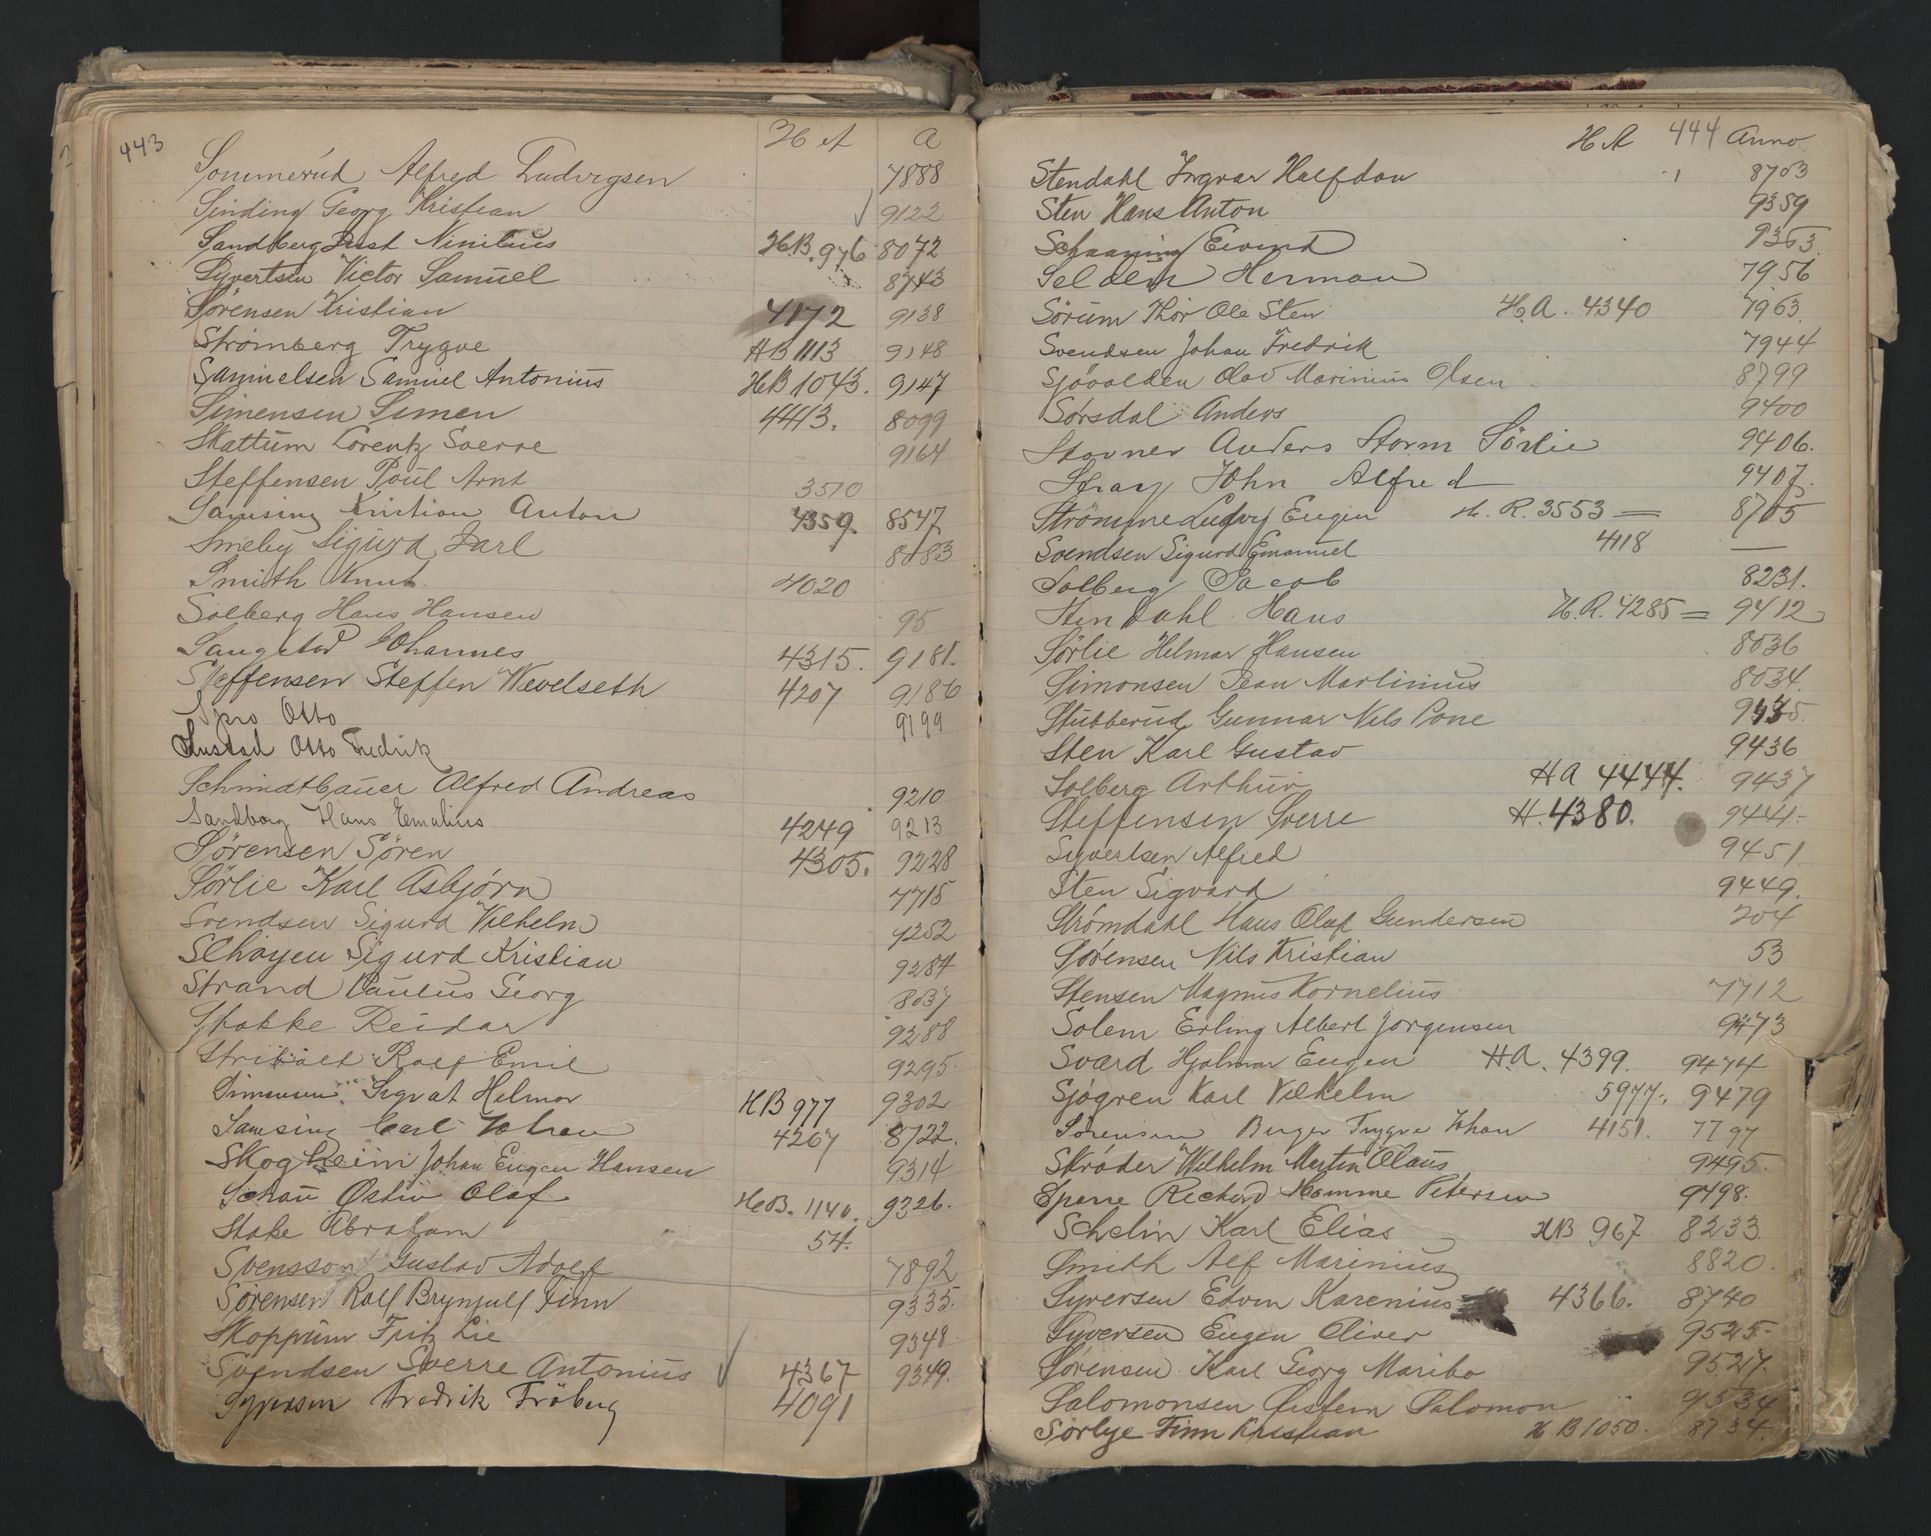 443 H A a
Sommerud Alfred Ludvigsen 7888
Sinding Georg Kristian 9122
Sandberg Just Ninitius HB. 976 8072
Syvertsen Victor Samuel 8743
Sørensen Kristian 4172 9138
Strømberg Trygve HB 1113 9148
Samuelsen Samuel Antonius HB 1043. 9147
Simensen Simen 4413. 8099
Skattum Lorentz Sverre 9164
Steffensen Poul Arnt 3510
Samsing Kristian Anton 4359. 8547
Smeby Sigurd Jarl 8083
Smith Knut 4020
Solberg Hans Hansen 95
Sangstad Johannes 4315. 9181.
Steffensen Steffen Wevelseth 4207 9186
Spro Otto 9199
Sustad Otto Fredrik
Schmidtbauer Alfred Andreas 9210
Sandborg Hans Emelius 4249 9213
Sörensen Sören 4305. 9228
Sørlie Karl Asbjørn 7715
Svendsen Sigurd Vilhelm 9252
Schøyen Sigurd Kristian 9284
Strand Paulus Georg 8037
Stokke Reidar 9288
Stribolt Rolf Emil 9295.
Simensen Sigvat Helmer HB 977 9302
Samsing Carl Johan 4267 8722.
Skogheim Johan Eugen Hansen 9314
Schau Østen Olaf HB. 1140. 9326.
Stake Abraham 54.
Svensson Gustav Adolf 7892
Sørensen Rolf Brynjulf Finn 9335.
Skoppum Fritz Lie 9348.
Svendsen Sverre Antonius 4367 9349.
Syversen Fredrik Fröberg 4091
H A 444 Anno
Stendahl Ingvar Halfdan 8703
Sten Hans Anton 9359
Schaaning Eivind 9363
Seldem Herman 7956
Sørum Thor Ole Sten H.A. 4340 7963.
Svendsen Johan Fredrik 7944
Sjøvolden Olav Marinius Olsen 8799
Sørsdal Anders 9400
Stovner Anders Storm Sörlie 9406.
Stray John Alfred 9407.
Strömme Ludvig Eugen H. R. 3553 = 8705
Svendsen Sigurd Emanuel 4118 —
Solberg Jacob 8231.
Stendahl Hans H.R. 4285 = 9412
Sørlie Helmar Hansen 8036
Simonsen Jean Martinius 8034.
Stubberud Gunnar Nils Pone 9435.
Sten Karl Gustav 9436
Solberg Arthur HA 4444. 9437
Steffensen Sverre H. 4380. 9441-
Syvertsen Alfred 9451
Sten Sigvard 9449.
Strömdahl Hans Olaf Gundersen 204
Sørensen Nils Kristian 53
Stensen Magnus Kornelius 7712
Solem Erling Albert Jørgensen 9473
Sværd Hjalmar Eugen HA. 4399. 9474
Sjøgren Karl Vilhelm 5977. 9479
Sørensen Birger Trygve Johan 4151. 7797
Skrøder Wilhelm Martin Olaus 9495.
Spene Richard Homme Petersen 9498.
Schelin Karl Elias HB 967 8233
Smith Alf Marinius 8820.
Syversen Edvin Karenius 4366. 8740
Syversen Eugen Oliver 9525-
Sørensen Karl Georg Maribo 9527.
Salomonsen Øistein Salomon 9534
Sørbye Finn Kristian HB 1050. 8734.